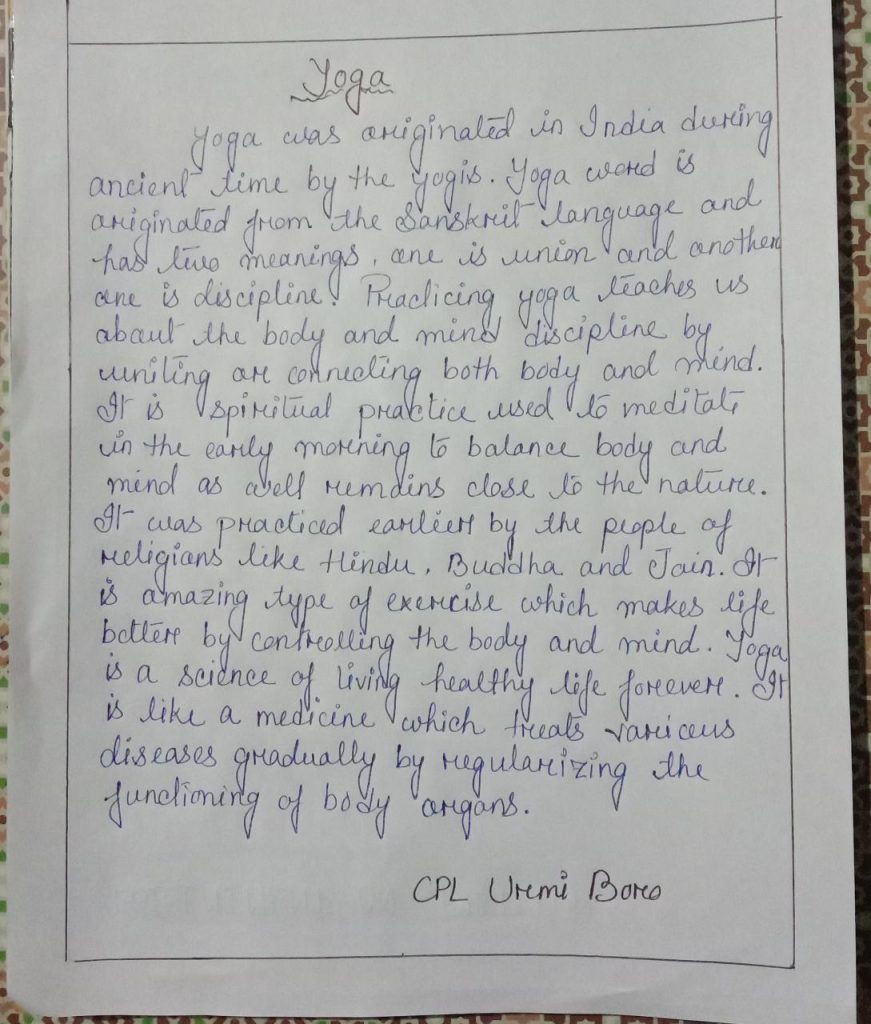 Yoga
Yoga was originated in India during
ancient time by the yogis. Yoga word is
originated from the Sanskrit language and
has two meanings, one is union and another
one is discipline. Practicing yoga teaches us
about the body and mind discipline by
uniting or connecting both body and mind.
It is spiritual practice used to meditate
in the early morning to balance body and
mind as well remains close to the nature.
It was practiced earlier by the people of
religions like Hindu, Buddha and Jain. It
is amazing type of exercise which makes life
better by controlling the body and mind. Yoga
is a science of living healthy life forever. It
is like a medicine which treats various
diseases gradually by regularizing the
functioning of body organs.
CPL Urmi Boro